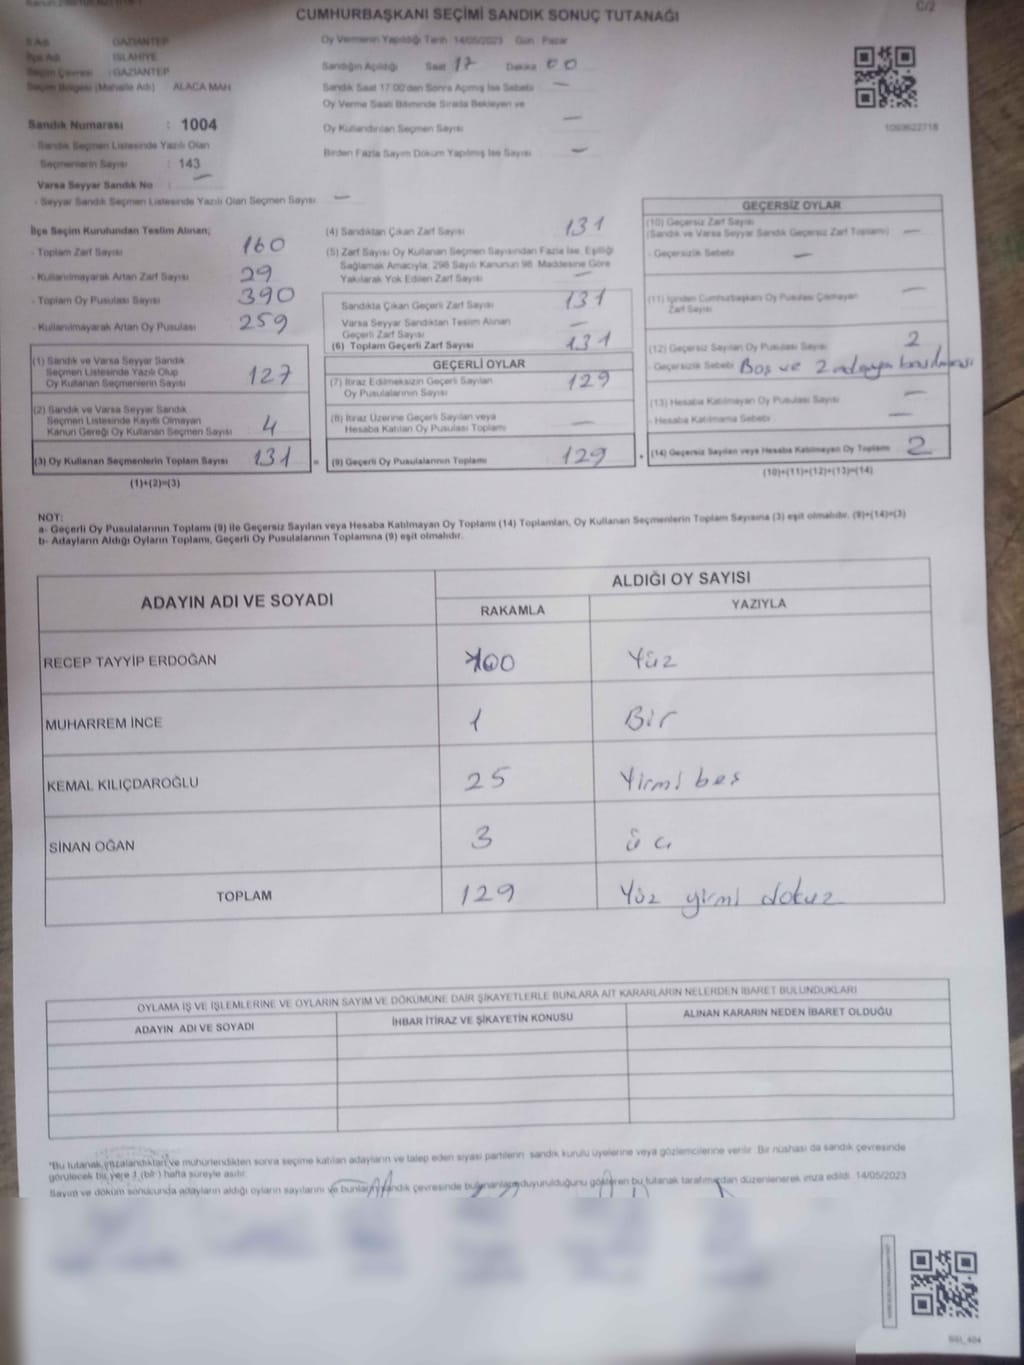 C/2
CUMHURBAŞKANI SEÇİMİ SANDIK SONUÇ TUTANAĞI
İl Adı GAZİANTEP
İlçe Adı İSLAHİYE
Seçim Çevresi : GAZİANTEP
Seçim Bölgesi (Mahalle Adı) ALACA MAH.
Sandık Numarası : 1004
- Sandık Seçmen Listesinde Yazılı Olan
Seçmenlerin Sayısı : 143
Varsa Seyyar Sandık No : —
- Seyyar Sandık Seçmen Listesinde Yazılı Olan Seçmen Sayısı: —
Oy Vermenin Yapıldığı Tarih 14/05/2023 Gün : Pazar
Sandığın Açıldığı Saat 17 Dakika 00
Sandık Saat 17:00'den Sonra Açılmış İse Sebebi —
Oy Verme Saati Bitiminde Sırada Bekleyen ve
Oy Kullandırılan Seçmen Sayısı —
Birden Fazla Sayım Döküm Yapılmış İse Sayısı —
1093622718
İlçe Seçim Kurulundan Teslim Alınan;
- Toplam Zarf Sayısı 160
- Kullanılmayarak Artan Zarf Sayısı 29
- Toplam Oy Pusulası Sayısı 390
- Kullanılmayarak Artan Oy Pusulası 259
(1) Sandık ve Varsa Seyyar Sandık
Seçmen Listesinde Yazılı Olup
Oy Kullanan Seçmenlerin Sayısı 127
(2) Sandık ve Varsa Seyyar Sandık
Seçmen Listesinde Kayıtlı Olmayan
Kanun Gereği Oy Kullanan Seçmen Sayısı 4
(3) Oy Kullanan Seçmenlerin Toplam Sayısı 131 =
(1)+(2)=(3)
(4) Sandıktan Çıkan Zarf Sayısı 131
(5) Zarf Sayısı Oy Kullanan Seçmen Sayısından Fazla İse, Eşitliği
Sağlamak Amacıyla, 298 Sayılı Kanunun 98. Maddesine Göre
Yakılarak Yok Edilen Zarf Sayısı —
Sandıkta Çıkan Geçerli Zarf Sayısı 131
Varsa Seyyar Sandıktan Teslim Alınan
Geçerli Zarf Sayısı —
(6) Toplam Geçerli Zarf Sayısı 131
GEÇERLİ OYLAR
(7) İtiraz Edilmeksizin Geçerli Sayılan
Oy Pusulalarının Sayısı 129
(8) İtiraz Üzerine Geçerli Sayılan veya
Hesaba Katılan Oy Pusulası Toplamı —
(9) Geçerli Oy Pusulalarının Toplamı 129 +
GEÇERSİZ OYLAR
(10) Geçersiz Zarf Sayısı
(Sandık ve Varsa Seyyar Sandık Geçersiz Zarf Toplamı) —
- Geçersizlik Sebebi —
(11) İçinden Cumhurbaşkanı Oy Pusulası Çıkmayan
Zarf Sayısı —
(12) Geçersiz Sayılan Oy Pusulası Sayısı 2
- Geçersizlik Sebebi Boş ve 2 adaya
(13) Hesaba Katılmayan Oy Pusulası Sayısı —
- Hesaba Katılmama Sebebi —
(14) Geçersiz Sayılan veya Hesaba Katılmayan Oy Toplamı 2
(10)+(11)+(12)+(13)=(14)
NOT:
a- Geçerli Oy Pusulalarının Toplamı (9) ile Geçersiz Sayılan veya Hesaba Katılmayan Oy Toplamı (14) Toplamları, Oy Kullanan Seçmenlerin Toplam Sayısına (3) eşit olmalıdır. (9)+(14)=(3)
b- Adayların Aldığı Oyların Toplamı, Geçerli Oy Pusulalarının Toplamına (9) eşit olmalıdır.
ADAYIN ADI VE SOYADI
ALDIĞI OY SAYISI
RAKAMLA YAZIYLA
RECEP TAYYİP ERDOĞAN 100 Yüz
MUHARREM İNCE 1 Bir
KEMAL KILIÇDAROĞLU 25 Yirmi beş
SİNAN OĞAN 3 üç
TOPLAM 129 Yüz yirmi dokuz
OYLAMA İŞ VE İŞLEMLERİNE VE OYLARIN SAYIM VE DÖKÜMÜNE DAİR ŞİKAYETLERLE BUNLARA AİT KARARLARIN NELERDEN İBARET BULUNDUKLARI
ADAYIN ADI VE SOYADI İHBAR İTİRAZ VE ŞİKAYETİN KONUSU ALINAN KARARIN NEDEN İBARET OLDUĞU
*Bu tutanak, imzalandıktan ve mühürlendikten sonra seçime katılan adayların ve talep eden siyasi partilerin sandık kurulu üyelerine veya gözlemcilerine verilir. Bir nüshası da sandık çevresinde
görülecek bir yere 1 (bir) hafta süreyle asılır.
Sayım ve döküm sonucunda adayların aldığı oyların sayılarını ve bunların sandık çevresinde bulunanlara duyurulduğunu gösteren bu tutanak tarafımızdan düzenlenerek imza edildi. 14/05/2023